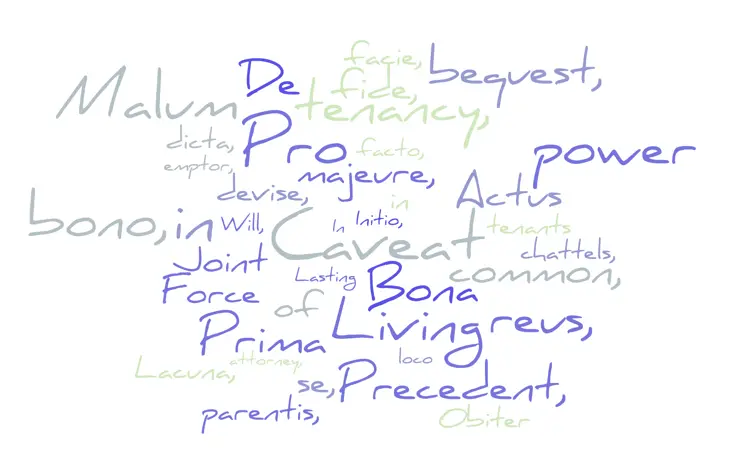 facie,
De fide, bequest,
Malum tenancy,
dicta, Pro facto, power
emptor, majeure,
devise, in Actus
bono, in Will, In Initio, tenants
Caveat chattels,
Joint Lasting common,
Force Bona
of Living reus,
Prima
Lacuna, attorney, loco
se, Precedent,
parentis, Obiter